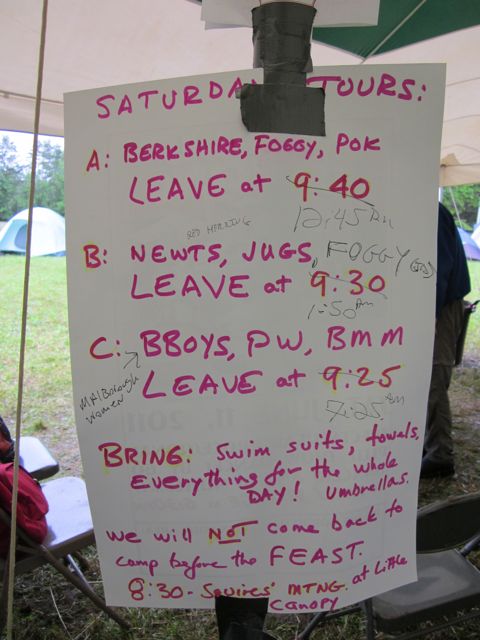 SATURDA TOURS:
A: BERKSHIRE, FOGGY, POK
LEAVE at 9:40
12:45 PM
RED HERRING
B: NEWTS, JUGS, FOGGY
LEAVE at 9:30
1:50 PM
C: BBOYS, PW, BMM
MAlBorough
women
LEAVE at 9:25
7:25 AM
BRING: Swim suits, towels,
everything for the whole
DAY! Umbrellas.
we will NOT come back to
camp before the FEAST.
8:30 - Squires' MTNG. at Little
Canopy